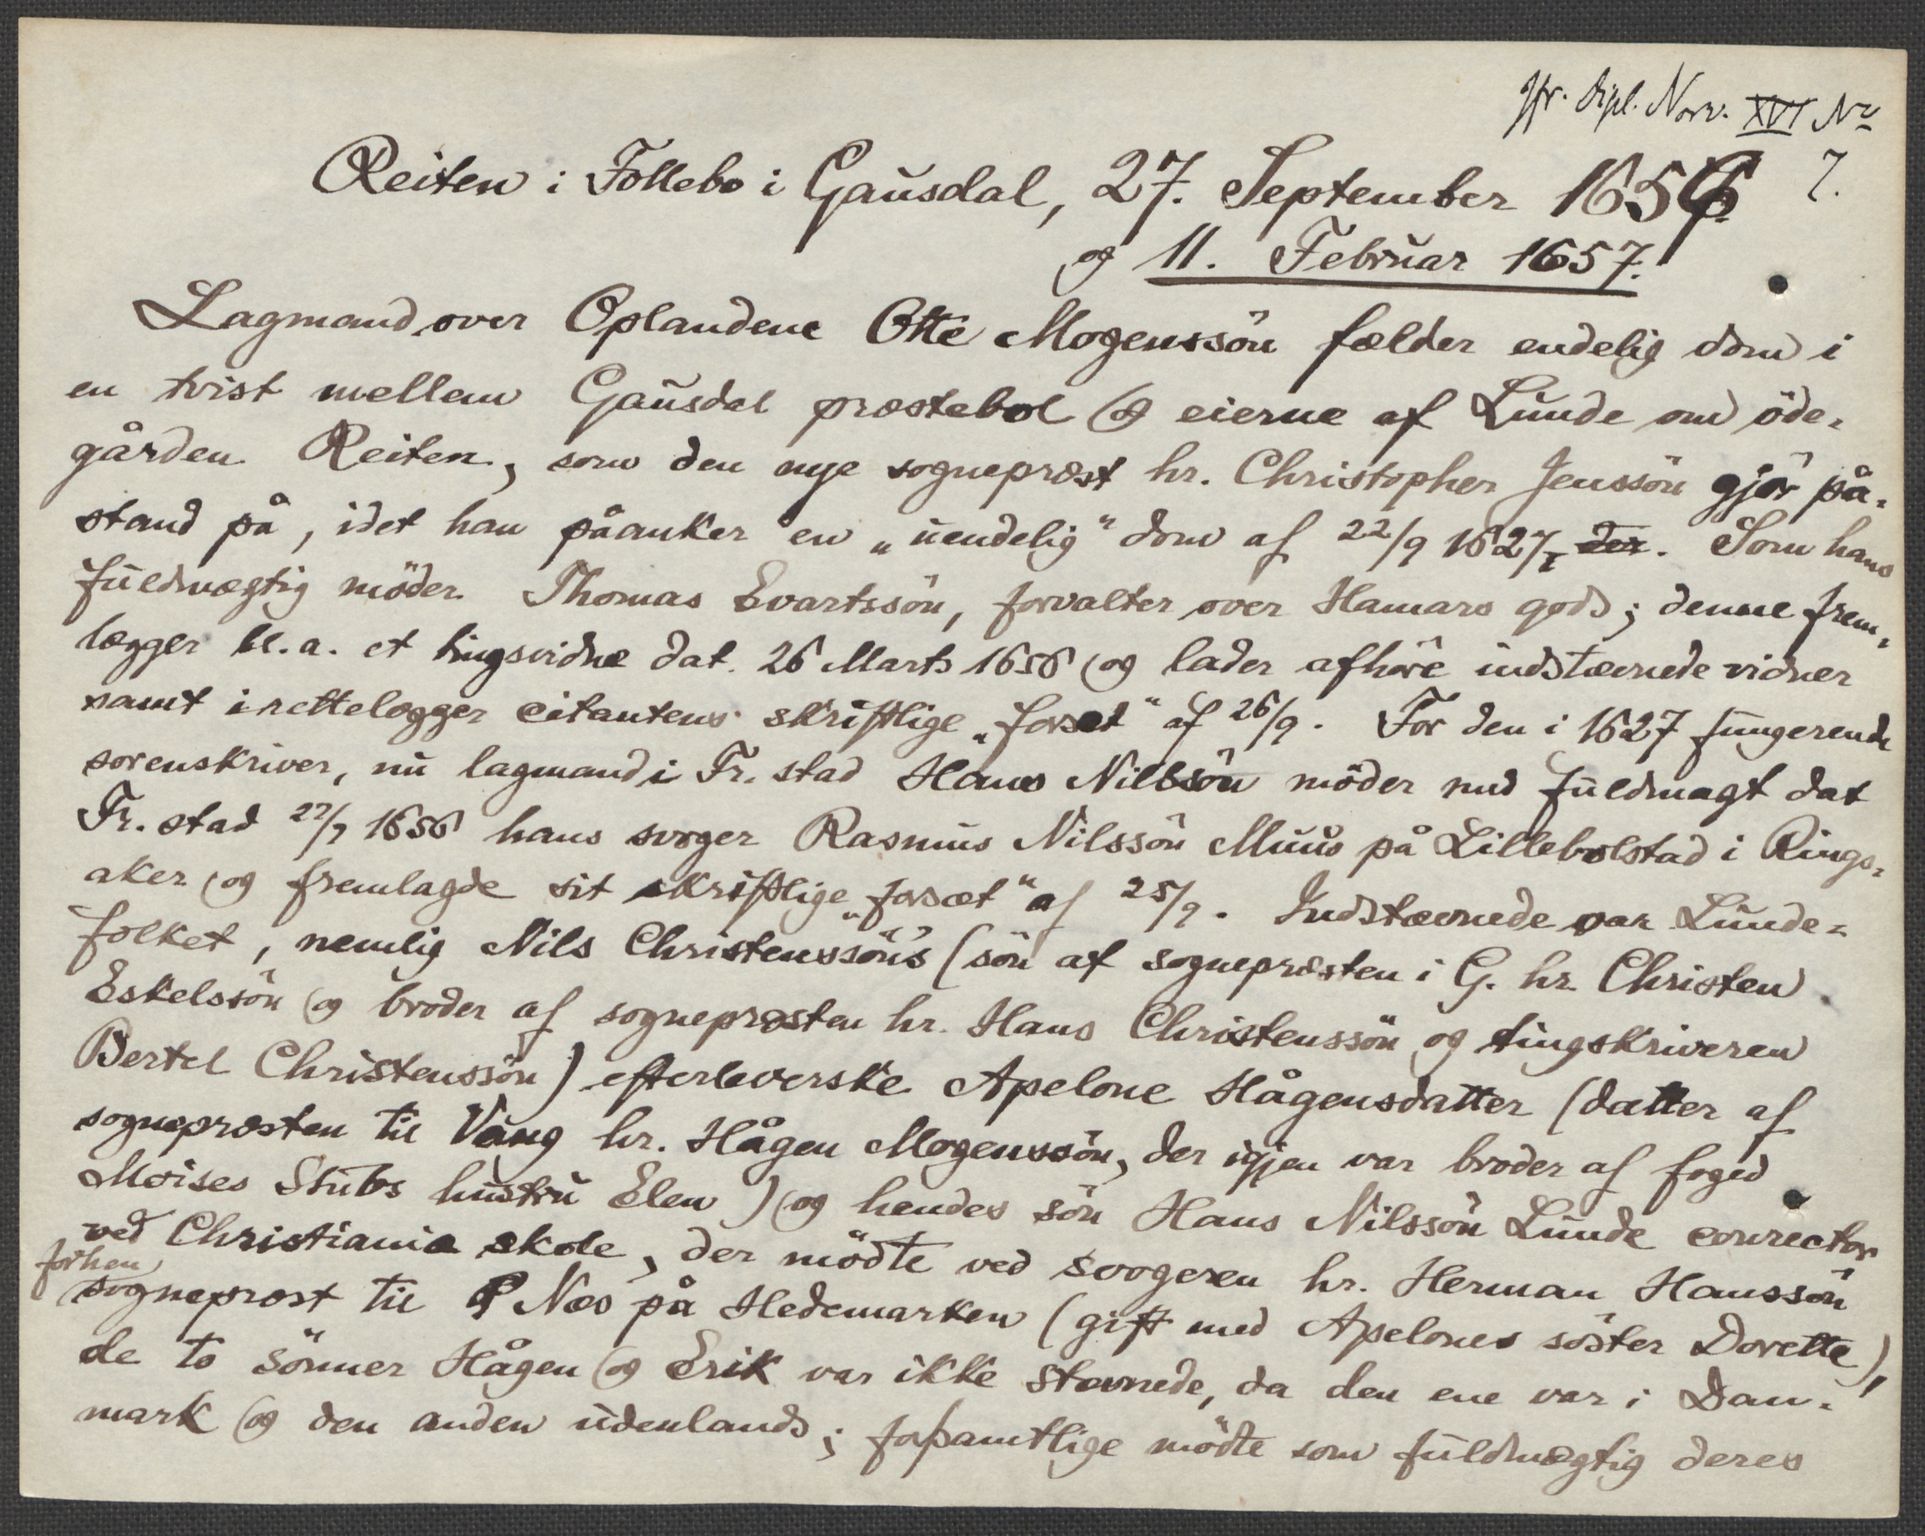 Jfr. Dipl. Norv. XVI No
7.
Reiten i Follebo i Gausdal, 27. September 1656
og 11. Februar 1657.
Lagmand over Oplandene Otte Mogenssön fælder endelig dom i
en tvist mellem Gausdal præstebol og eierne af Lunde om öde-
gården Reiten, som den nye sogneprest hr. Christopher Jenssön gjör på-
stand på, idet han påanker en „uendelig“ dom af 22/9 1627, der. Som hans
fuldmægtig möder Thomas Evartssön, forvalter over Hamars gods; denne frem-
lægger bl. a. et tingsvidne dat. 26 Marts 1656 og lader afhöre indstævnede vidner
samt i rettelægger citantens skriftlige „forsæt“ af 26/9. For den i 1627 fungerende
sorenskriver, nu lagmand i Fr. stad Hans Nilssön möder med fuldmagt dat
Fr. stad 22/7 1656 hans svoger Rasmus Nilssön Muus på Lillebolstad i Rings-
aker og fremlagde sit skriftlige „forsæt“ af 25/9. Indstævnede var Lunde-
folket, nemlig Nils Christenssön's (sön af sognepræsten i G. hr. Christen
Eskelssön og broder af sognepræsten hr. Hans Christenssön og tingskriveren
Bertel Christenssön) efterleverske Apelone Hågensdatter (datter af
sognepræsten til Vang hr. Hågen Mogenssön, der igjen var broder af foged
Moises Stubs hustru Elen) og hendes sön Hans Nilssön Lunde conrector
ved Christiania skole, der mödte ved svogeren hr. Herman Hanssön
forhen
sogneprost til Nes på Hedemarken (gift med Apelones söster Dorette),
de to sönner Hågen og Erik var ikke stævnede, da den ene var i Dan-
mark og den anden udenlands; forsamtlige mödte som fuldmægtig deres